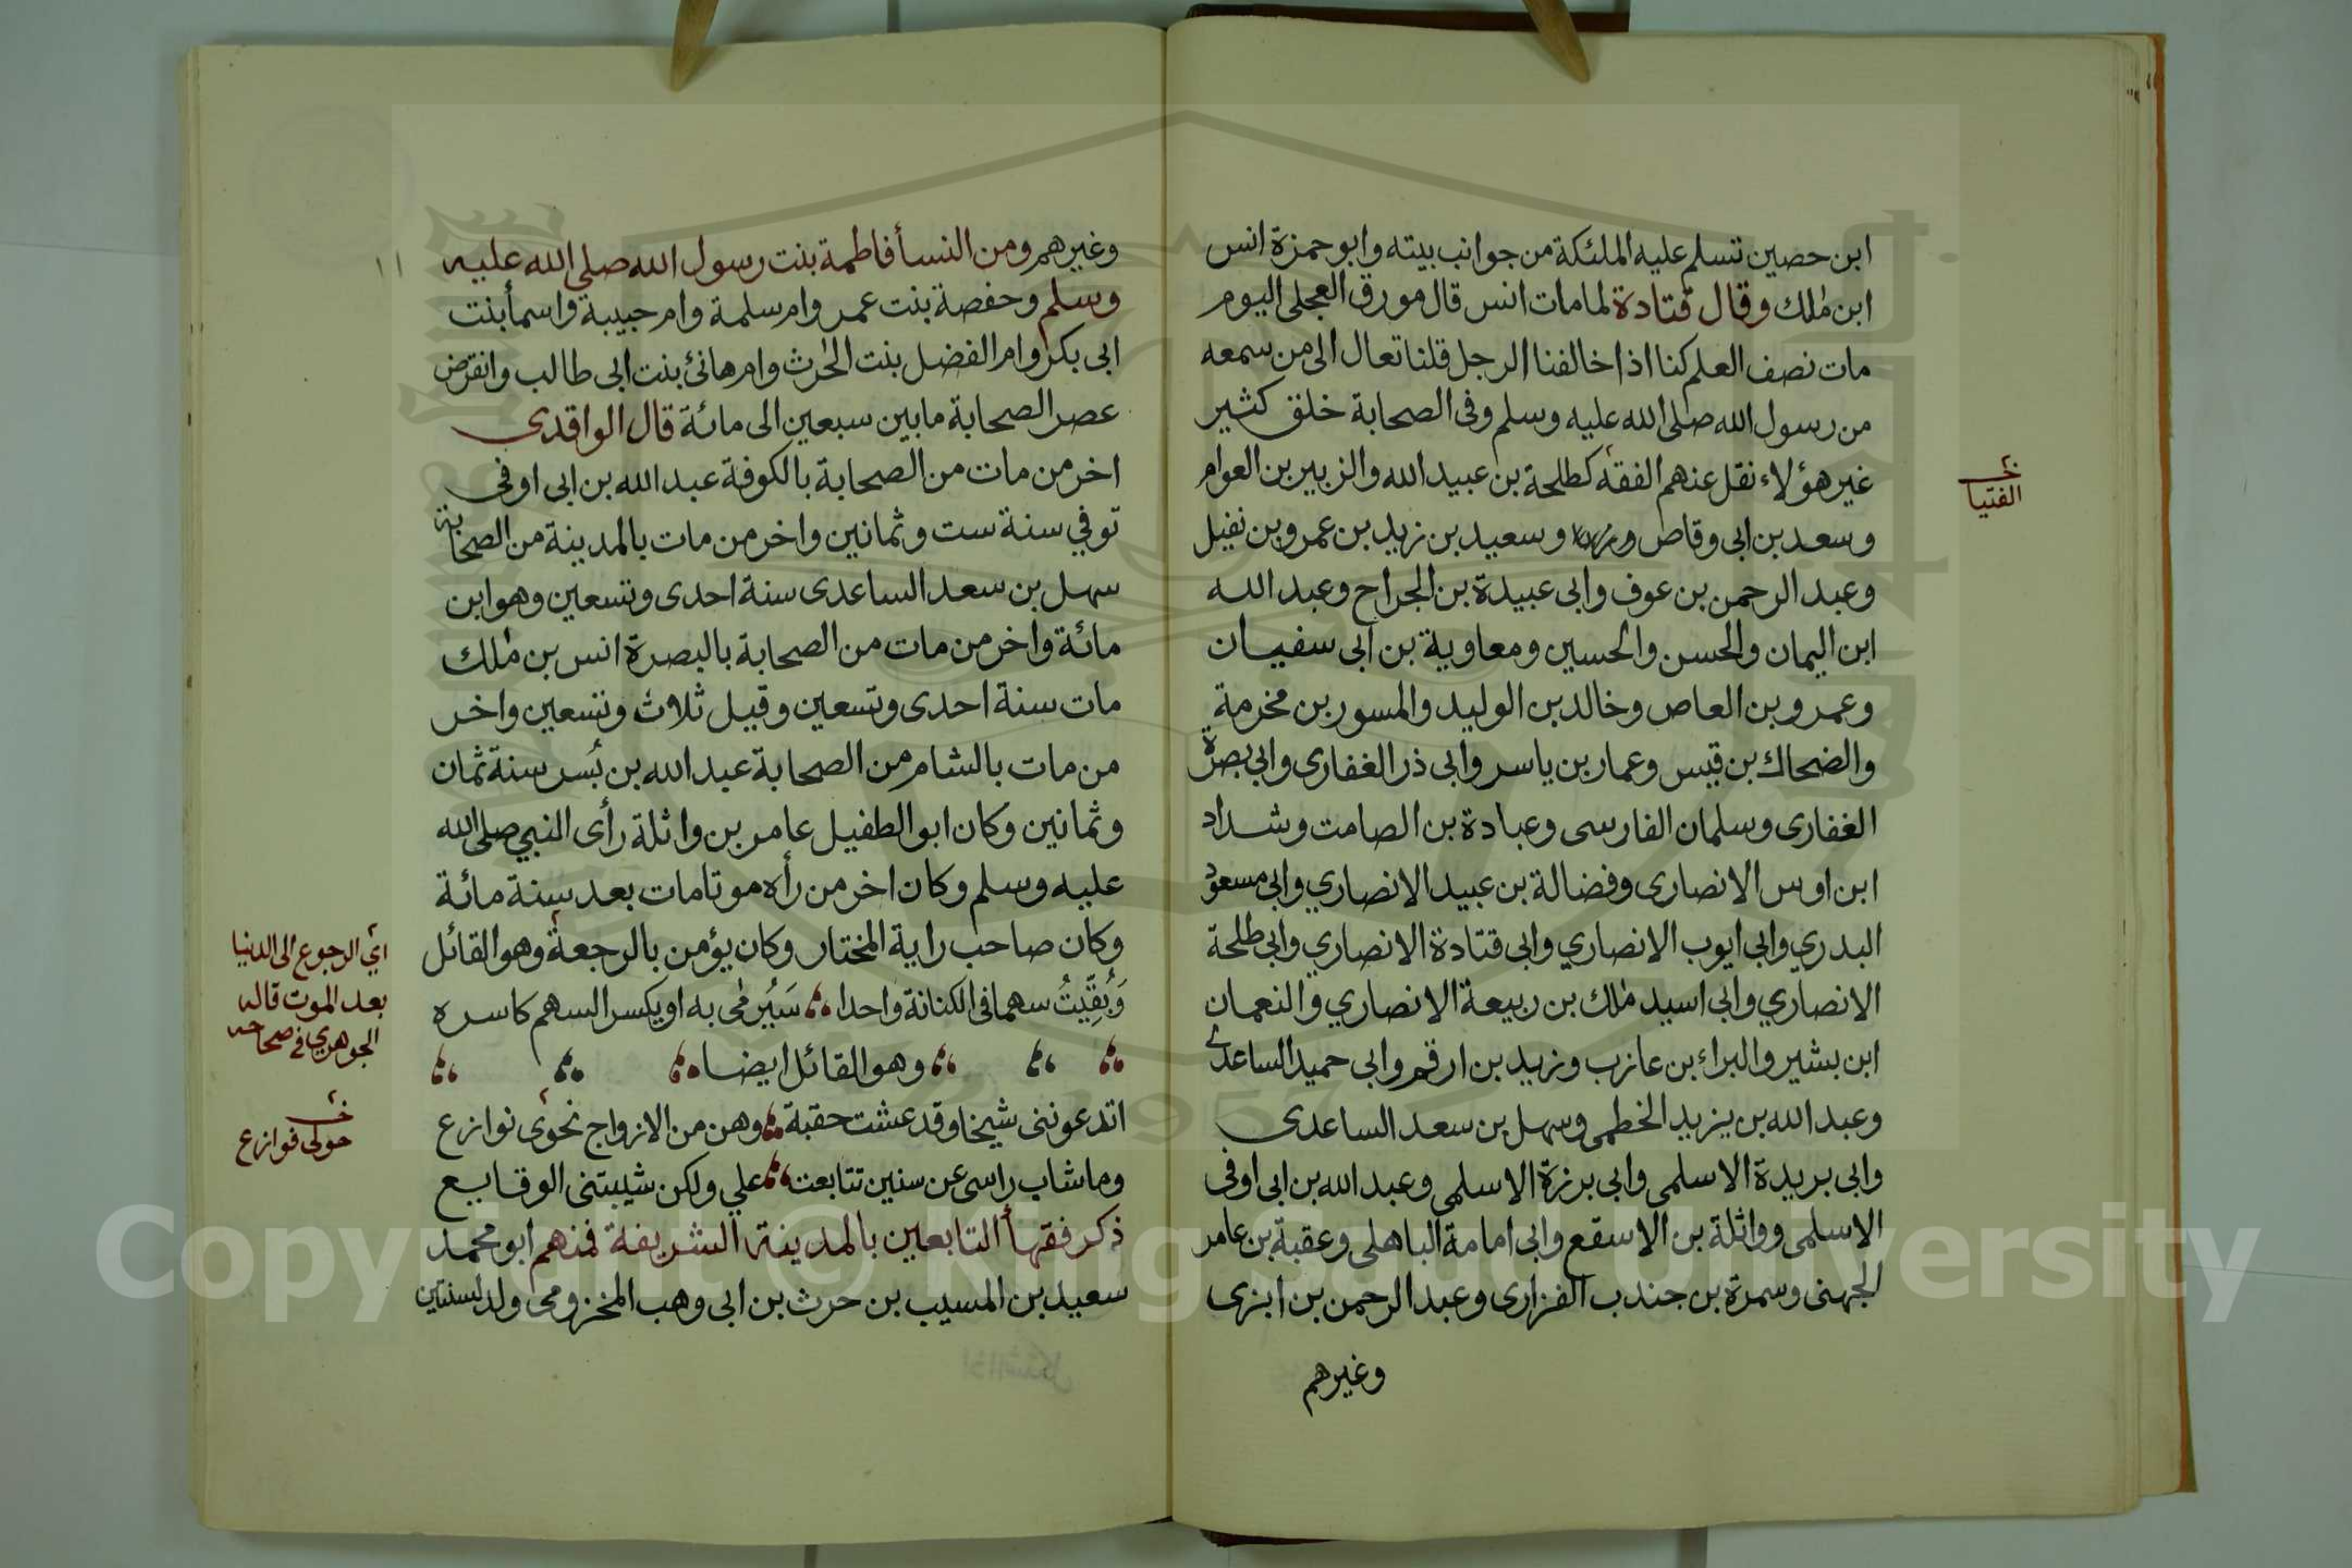 ابن حصين تتسلم عليه الملئكة من جوانب بيته وابو حمزة انس
ابن ملك وقال قتادة لما مات انس قال مورق العجلى اليوم
مات نصف العلم كنا اذا خالفنا الرجل قلنا تعال الى من سمعه
من رسول الله صلى الله عليه وسلم وفى الصحابة خلق كثير
غير هؤلاء نقل عنهم الفقه كطلحة بن عبيد الله والزبير بن العوام
وسعد بن ابى وقاص وسعيد بن زيد بن عمرو بن نفيل
وعبد الرحمن بن عوف وابى عبيدة بن الجراح وعبد الله
ابن اليمان والحسن والحسين ومعاوية بن ابى سفيان
وعمرو بن العاص وخالد بن الوليد والمسور بن مخرمة
والضحاك بن قيس وعمار بن ياسر وابى ذر الغفارى وابى بصرة
الغفارى وسلمان الفارسى وعبادة بن الصامت وشداد
ابن اوس الانصارى وفضالة بن عبيد الانصاري وابى مسعود
البدري وابى ايوب الانصاري وابى قتادة الانصاري وابى طلحة
الانصاري وابى اسيد ملك بن ربيعة الانصاري والنعمان
ابن بشير والبراء بن عازب وزيد بن ارقم وابى حميد الساعدي
وعبد الله بن يزيد الخطمى وسهل بن سعد الساعدى
وابى بريدة الاسلمى وابى برزة الاسلمى وعبد الله بن ابى اوفى
الاسلمى وواثلة بن الاسقع وابى امامة الباهلى وعقبة بن عامر
الجهنى وسمرة بن جندب الفزارى وعبد الرحمن بن ابزى
وغيرهم
خـ
الفتيا
وغيرهم ومن النسأ فاطمة بنت رسول الله صلى الله عليه
وسلم وحفصة بنت عمر وام سلمة وام حبيبة واسمأ بنت
ابى بكر وام الفضل بنت الحرث وام هانئ بنت ابى طالب وانقرض
عصر الصحابة ما بين سبعين الى مائة قال الواقدى
اخر من مات من الصحابة بالكوفة عبد الله بن ابى اوفى
توفي سنة ست وثمانين واخر من مات بالمدينة من الصحابة
سهل بن سعد الساعدى سنة احدى وتسعين وهو ابن
مائة واخر من مات من الصحابة بالبصرة انس بن ملك
مات سنة احدى وتسعين وقيل ثلاث وتسعين واخر
من مات بالشام من الصحابة عبد الله بن بُسر سنة ثمان
وثمانين وكان ابو الطفيل عامر بن واثلة رأى النبي صلى الله
عليه وسلم وكان اخر من رأه موتا مات بعد سنة مائة
وكان صاحب راية المختار وكان يؤمن بالرجعة وهو القائل
وَبُقِّيتُ سهما فى الكنانة واحدا سَيُرمٰى به او يكسر السهم كاسره
وهو القائل ايضا
اتدعوننى شيخا وقد عشت حقبة وهن من الازواج نحوى نوازع
وما شاب راسى عن سنين تتابعت علي ولكن شيبتنى الوقايع
ذكر فقهأ التابعين بالمدينة الشريفة فمنهم ابو محمد
سعيد بن المسيب بن حرث بن ابى وهب المخزومى ولد لسنتين
١١
اي الرجوع الى الدنيا
بعد الموت قاله
الجوهري فى صحاحه
خـ
حولى فوازع
Copyright © King Saud University
1957